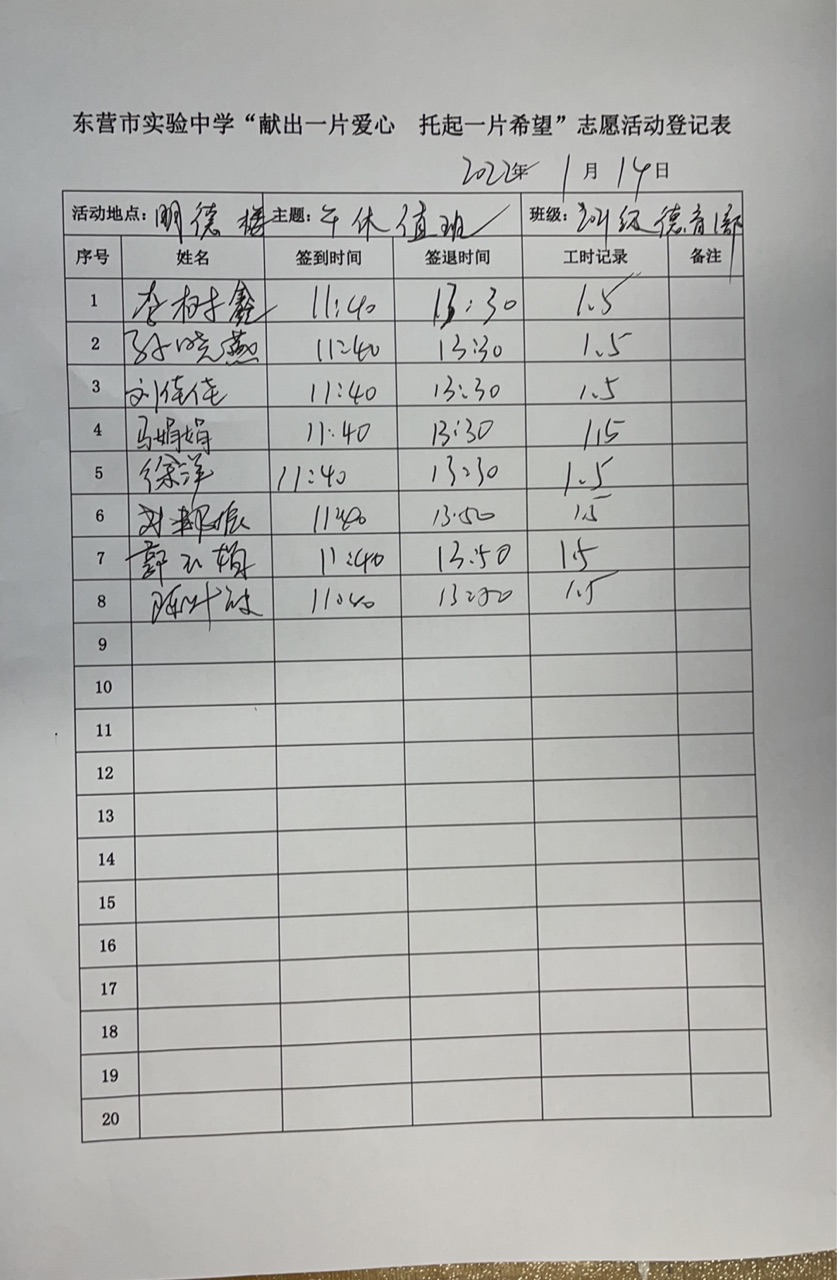 东营市实验中学“献出一片爱心 托起一片希望”志愿活动登记表
2022年 1月 14日
活动地点：明德楼 主题：午休值班 班级：级德育部
序号 姓名 签到时间 签退时间 工时记录 备注
1 李树鑫 11:40 13:30 1.5
2 孙晓燕 11:40 13:30 1.5
3 刘佳佳 11:40 13:30 1.5
4 马娟娟 11:40 13:30 1.5
5 徐洋 11:40 13:30 1.5
6 刘振 11:40 13:50 1.5
7 郭 11:40 13:50 1.5
8 陈叶 11:40 1.5
9
10
11
12
13
14
15
16
17
18
19
20